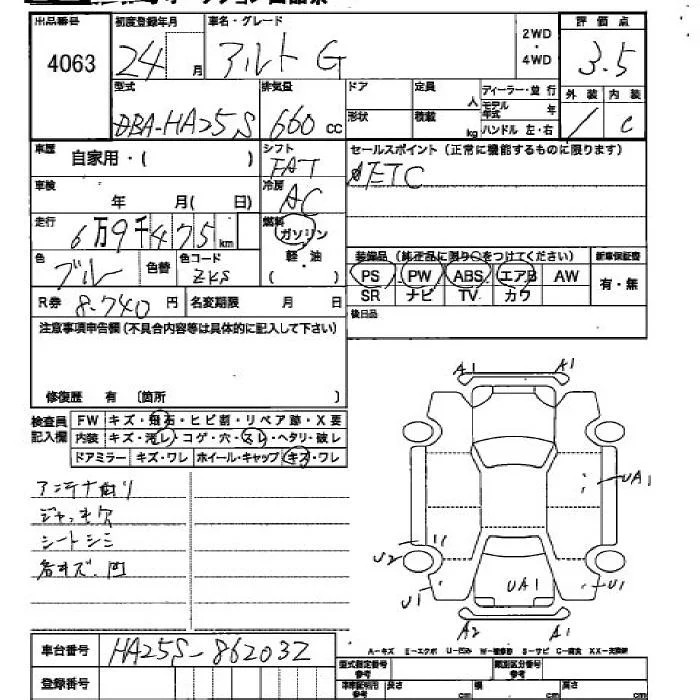 出品番号
4063
初度登録年月
24 月
車名・グレード
アルト G
2WD
・
4WD
評価点
3.5
外装 内装
C
型式
DBA-HA25S
排気量
660 cc
ドア
形状
定員 人
積載 kg
ディーラー・並行
モデル年式 年
ハンドル 左・右
車歴
自家用・( )
シフト
FAT
セールスポイント(正常に機能するものに限ります)
ETC
車検
年 月( 日)
冷房
AC
走行
6万9千475km
燃料
ガソリン
軽・油
( )
色
ブルー
色替
色コード
ZKS
装備品 (純正品に限り○をつけてください)
新車保証書
PS PW ABS エアB AW
SR ナビ TV カワ
有・無
R券 8.740 円
名変期限 月 日
後日品
注意事項申告欄(不具合内容等は具体的に記入して下さい)
修復歴 有 〔箇所 〕
検査員
記入欄
FW キズ・飛石・ヒビ割・リペア跡・X要
内装 キズ・汚レ・コゲ・穴・スレ・ヘタリ・破レ
ドアミラー キズ・ワレ ホイール・キャップ キズ・ワレ
アンテナ曲り
ジャッキ欠
シートシミ
各キズ.凹
A1
A1
UA1
U2
U1
UA1
U1
A2
A1
A-キズ E-エクボ U-凹み W-補修跡 S-サビ C-腐食 XX-交換済
車台番号
HA25S-862032
登録番号
型式指定番号
類別区分番号
参考
長さ cm 幅 cm 高さ cm